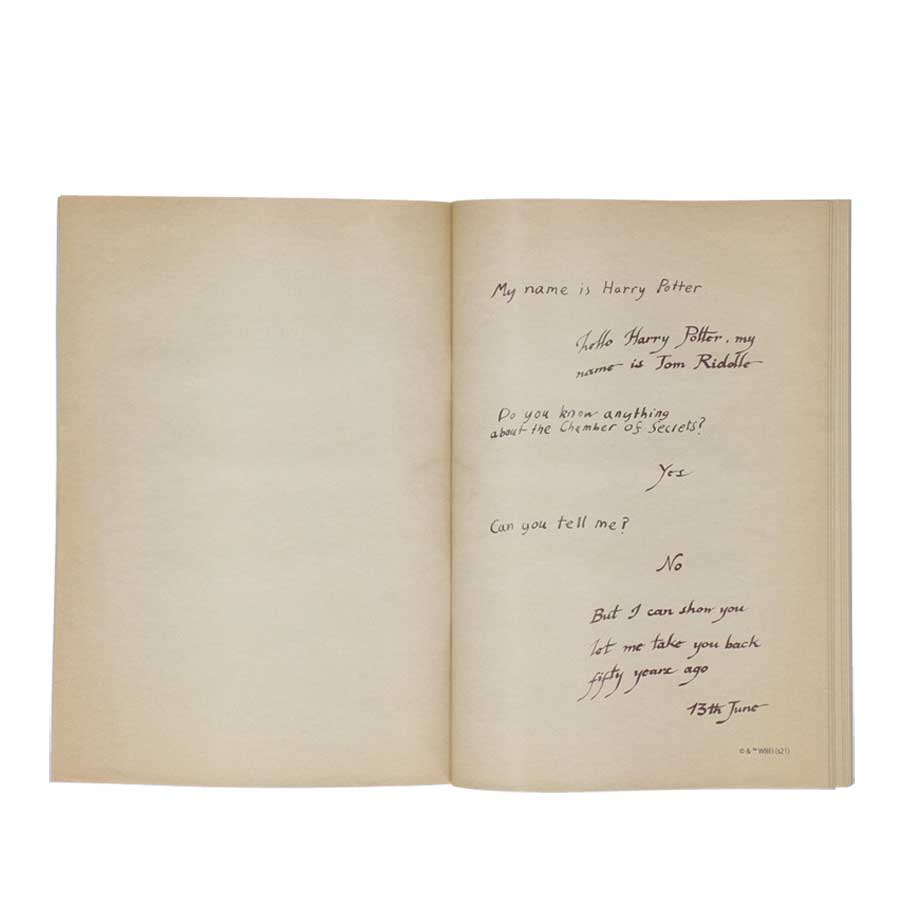 My name is Harry Potter
hello Harry Potter, my
name is Tom Riddle
Do you know anything
about the Chamber of Secrets?
Yes
Can you tell me?
No
But I can show you
let me take you back
fifty years ago
13th June
© & ™ WBEI (s21)